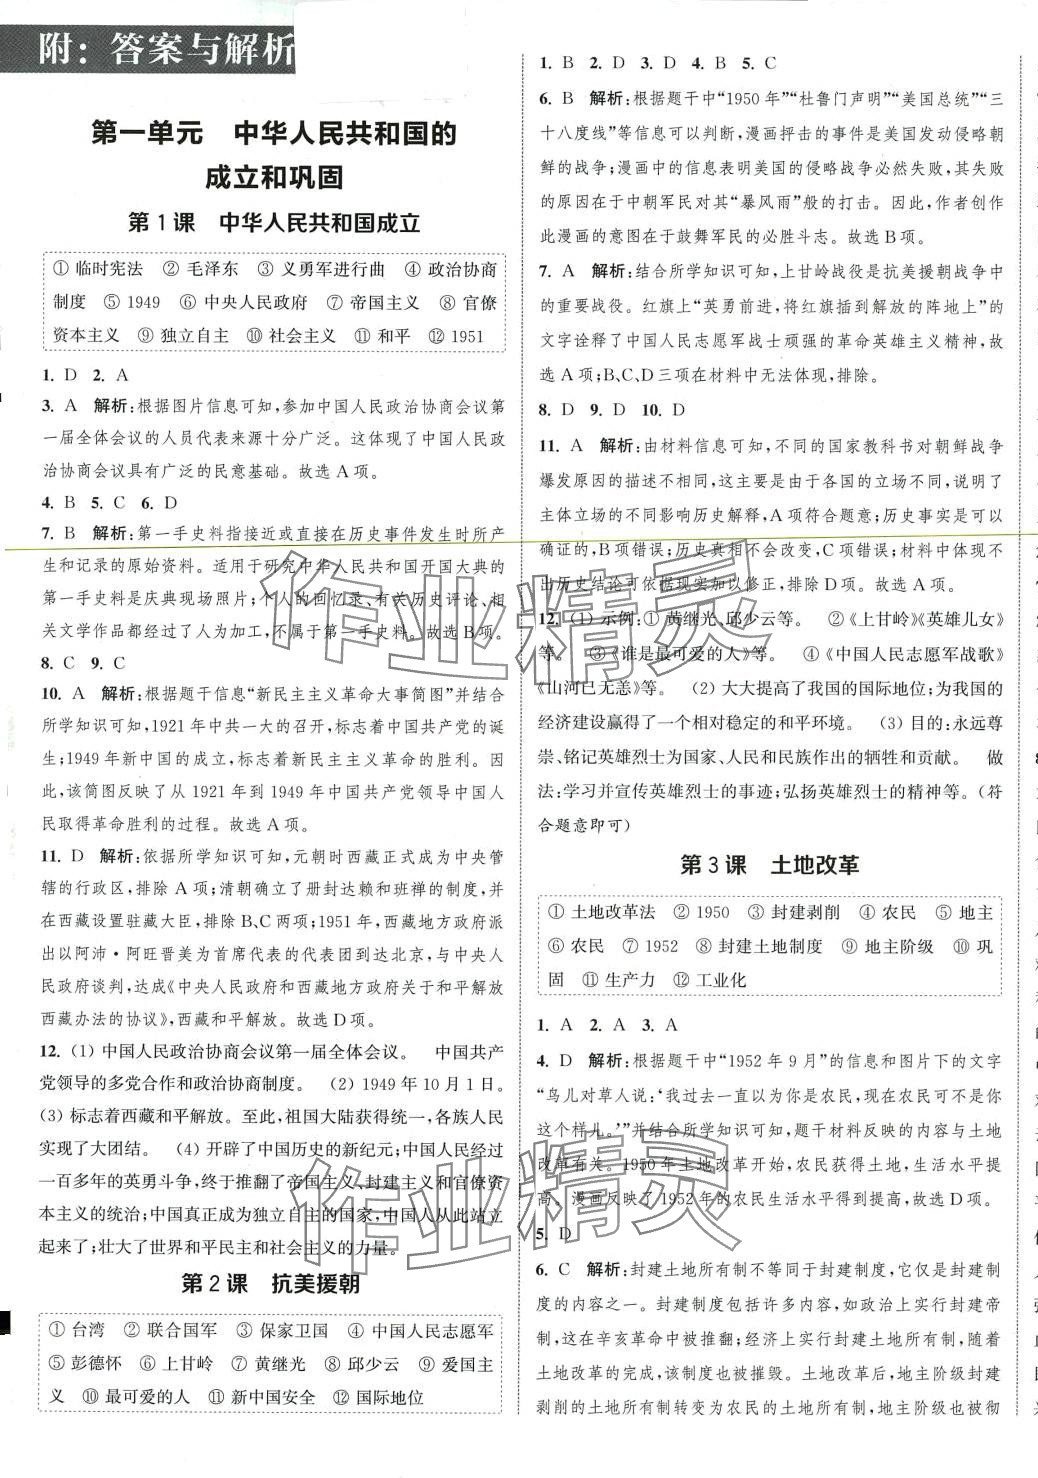 附：答案与解析
第一单元　中华人民共和国的
成立和巩固
第1课　中华人民共和国成立
①临时宪法　②毛泽东　③义勇军进行曲　④政治协商
制度　⑤1949　⑥中央人民政府　⑦帝国主义　⑧官僚
资本主义　⑨独立自主　⑩社会主义　⑪和平　⑫1951
1. D　2. A
3. A　解析:根据图片信息可知,参加中国人民政治协商会议第
一届全体会议的人员代表来源十分广泛。这体现了中国人民政
治协商会议具有广泛的民意基础。故选A项。
4. B　5. C　6. D
7. B　解析:第一手史料指接近或直接在历史事件发生时所产
生和记录的原始资料。适用于研究中华人民共和国开国大典的
第一手史料是庆典现场照片;个人的回忆录、有关历史评论、相
关文学作品都经过了人为加工,不属于第一手史料。故选B项。
8. C　9. C
10. A　解析:根据题干信息“新民主主义革命大事简图”并结合
所学知识可知,1921年中共一大的召开,标志着中国共产党的诞
生;1949年新中国的成立,标志着新民主主义革命的胜利。因
此,该简图反映了从1921年到1949年中国共产党领导中国人
民取得革命胜利的过程。故选A项。
11. D　解析:依据所学知识可知,元朝时西藏正式成为中央管
辖的行政区,排除A项;清朝确立了册封达赖和班禅的制度,并
在西藏设置驻藏大臣,排除B,C两项;1951年,西藏地方政府派
出以阿沛·阿旺晋美为首席代表的代表团到达北京,与中央人
民政府谈判,达成《中央人民政府和西藏地方政府关于和平解放
西藏办法的协议》,西藏和平解放。故选D项。
12. (1)中国人民政治协商会议第一届全体会议。　中国共产
党领导的多党合作和政治协商制度。　(2)1949年10月1日。
(3)标志着西藏和平解放。至此,祖国大陆获得统一,各族人民
实现了大团结。　(4)开辟了中国历史的新纪元;中国人民经过
一百多年的英勇斗争,终于推翻了帝国主义、封建主义和官僚资
本主义的统治;中国真正成为独立自主的国家,中国人从此站立
起来了;壮大了世界和平民主和社会主义的力量。
第2课　抗美援朝
①台湾　②联合国军　③保家卫国　④中国人民志愿军
⑤彭德怀　⑥上甘岭　⑦黄继光　⑧邱少云　⑨爱国主
义　⑩最可爱的人　⑪新中国安全　⑫国际地位
1. B　2. D　3. D　4. B　5. C
6. B　解析:根据题干中“1950年”“杜鲁门声明”“美国总统”“三
十八度线”等信息可以判断,漫画抨击的事件是美国发动侵略朝
鲜的战争;漫画中的信息表明美国的侵略战争必然失败,其失败
的原因在于中朝军民对其“暴风雨”般的打击。因此,作者创作
此漫画的意图在于鼓舞军民的必胜斗志。故选B项。
7. A　解析:结合所学知识可知,上甘岭战役是抗美援朝战争中
的重要战役。红旗上“英勇前进,将红旗插到解放的阵地上”的
文字诠释了中国人民志愿军战士顽强的革命英雄主义精神,故
选A项;B,C,D三项在材料中无法体现,排除。
8. D　9. D　10. D
11. A　解析:由材料信息可知,不同的国家教科书对朝鲜战争
爆发原因的描述不相同,这主要是由于各国的立场不同,说明了
主体立场的不同影响历史解释,A项符合题意;历史事实是可以
确证的,B项错误;历史真相不会改变,C项错误;材料中体现不
出历史结论可依据现实加以修正,排除D项。故选A项。
12. (1)示例:①黄继光、邱少云等。　②《上甘岭》《英雄儿女》
等。　③《谁是最可爱的人》等。　④《中国人民志愿军战歌》
《山河已无恙》等。　(2)大大提高了我国的国际地位;为我国的
经济建设赢得了一个相对稳定的和平环境。　(3)目的:永远尊
崇、铭记英雄烈士为国家、人民和民族作出的牺牲和贡献。　做
法:学习并宣传英雄烈士的事迹;弘扬英雄烈士的精神等。(符
合题意即可)
第3课　土地改革
①土地改革法　②1950　③封建剥削　④农民　⑤地主
⑥农民　⑦1952　⑧封建土地制度　⑨地主阶级　⑩巩
固　⑪生产力　⑫工业化
1. A　2. A　3. A
4. D　解析:根据题干中“1952年9月”的信息和图片下的文字
“鸟儿对草人说:‘我过去一直以为你是农民,现在农民可不像你
这个样儿。’”并结合所学知识可知,题干材料反映的内容与土地
改革有关。1950年土地改革开始,农民获得土地,生活水平提
高。漫画反映了1952年的农民生活水平得到提高,故选D项。
5. D
6. C　解析:封建土地所有制不等同于封建制度,它仅是封建制
度的内容之一。封建制度包括许多内容,如政治上实行封建帝
制,这在辛亥革命中被推翻;经济上实行封建土地所有制,随着
土地改革的完成,该制度也被摧毁。土地改革后,地主阶级封建
剥削的土地所有制转变为农民的土地所有制,地主阶级也被彻
作业精灵
作业精灵